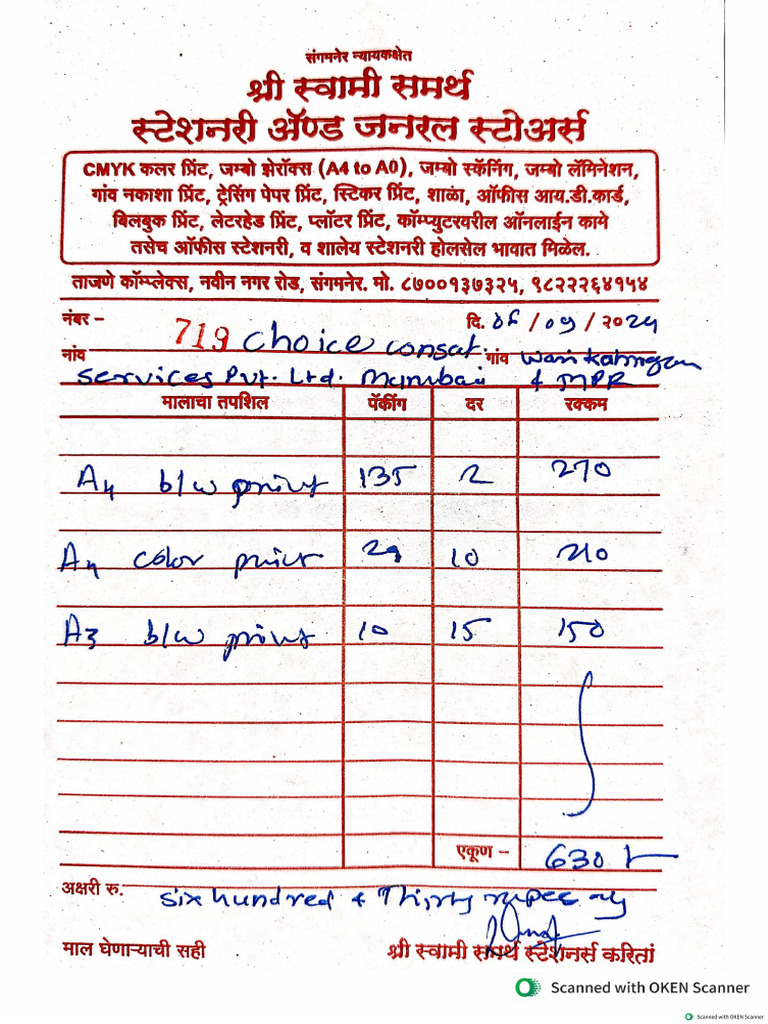 संगमनेर न्यायकक्षेत
श्री स्वामी समर्थ
स्टेशनरी ॲण्ड जनरल स्टोअर्स
CMYK कलर प्रिंट, जम्बो झेरॉक्स (A4 to A0), जम्बो स्कॅनिंग, जम्बो लॅमिनेशन,
गांव नकाशा प्रिंट, ट्रेसिंग पेपर प्रिंट, स्टिकर प्रिंट, शाळा, ऑफीस आय.डी.कार्ड,
बिलबुक प्रिंट, लेटरहेड प्रिंट, प्लॉटर प्रिंट, कॉम्प्युटरवरील ऑनलाईन कामे
तसेच ऑफीस स्टेशनरी, व शालेय स्टेशनरी होलसेल भावात मिळेल.
ताजणे कॉम्प्लेक्स, नवीन नगर रोड, संगमनेर. मो. ८७००१३७३२५, ९८२२२६४१५४
नंबर – 719 दि. /09/२०24
नांव Choice consat. गांव
Services Pvt. Ltd. Mumbai & MPR
मालाचा तपशिल पॅकींग दर रक्कम
A4 b/w print 135 2 270
A4 color print 21 10 210
A3 b/w print 10 15 150
एकूण – 630
अक्षरी रु. six hundred & Thirty rupee
माल घेणाऱ्याची सही श्री स्वामी समर्थ स्टेशनर्स करितां
Scanned with OKEN Scanner
Scanned with OKEN Scanner